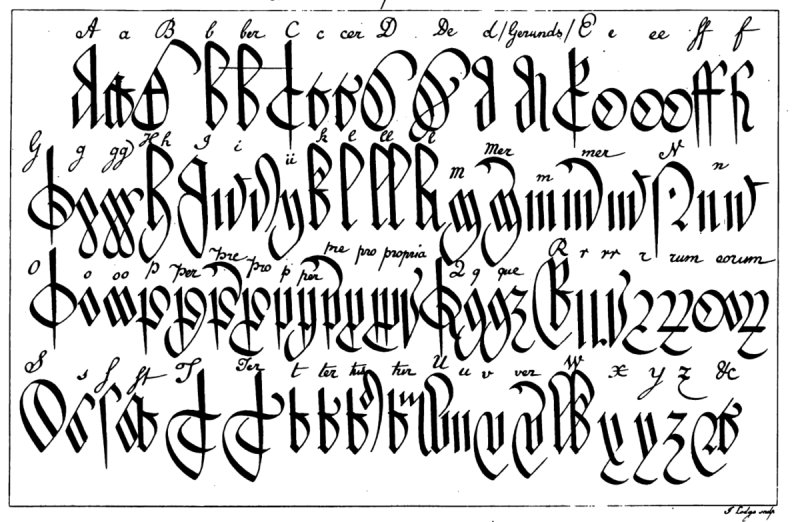 A a B b ber C c cer D De d /Gerunds/ E e ee ff f
G g gg H h I i ii k l ll M Mer m mer N n
O o oo p per pre pro p per pre pro propria Q q que R r rr r rum eorum
S s ſ ſt T Ter t ter ter U u v ver W x y z &c
J Lodge sculp